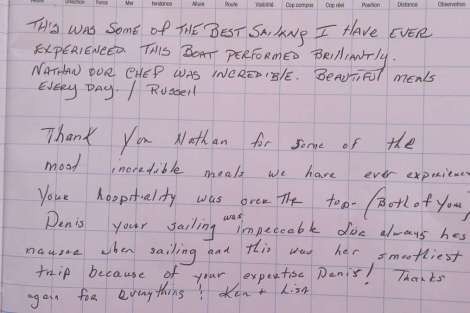 Direction Force Mer tendance Allure Route Visibilité Cap compas Cap réel Position Distance Observation
THIS WAS SOME OF THE BEST SAILING I HAVE EVER
EXPERIENCED THIS BOAT PERFORMED BRILLIANTLY.
NATHAN OUR CHEF WAS INCREDIBLE. BEAUTIFUL MEALS
EVERY DAY. / RUSSELL
Thank You Nathan for some of the
most incredible meals we have ever experience
Your hospitality was over the top - (Both of you)
Denis your sailing was impeccable Sue always has
nausea when sailing and this was her smoothest
trip because of your expertise Denis! Thanks
again for everything! Ken + Lisa